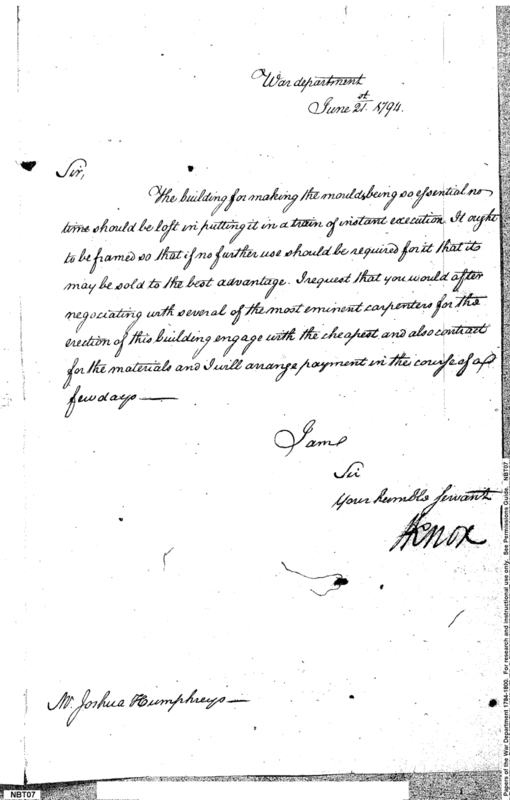 War department
June 21st. 1794.
Sir,
The building for making the moulds being so essential no
time should be lost in putting it in a train of instant execution. It ought
to be framed so that if no further use should be required for it that its
may be sold to the best advantage. I request that you would after
negociating with several of the most eminent carpenters for the
erection of this building engage with the cheapest and also contract
for the materials and I will arrange payment in the course of a
few days —
I am
Sir
Your humble Servant
HKnox
Mr. Joshua Humphreys —
NBT07
Papers of the War Department 1784-1800. For research and instructional use only. See Permissions Guide. NBT07